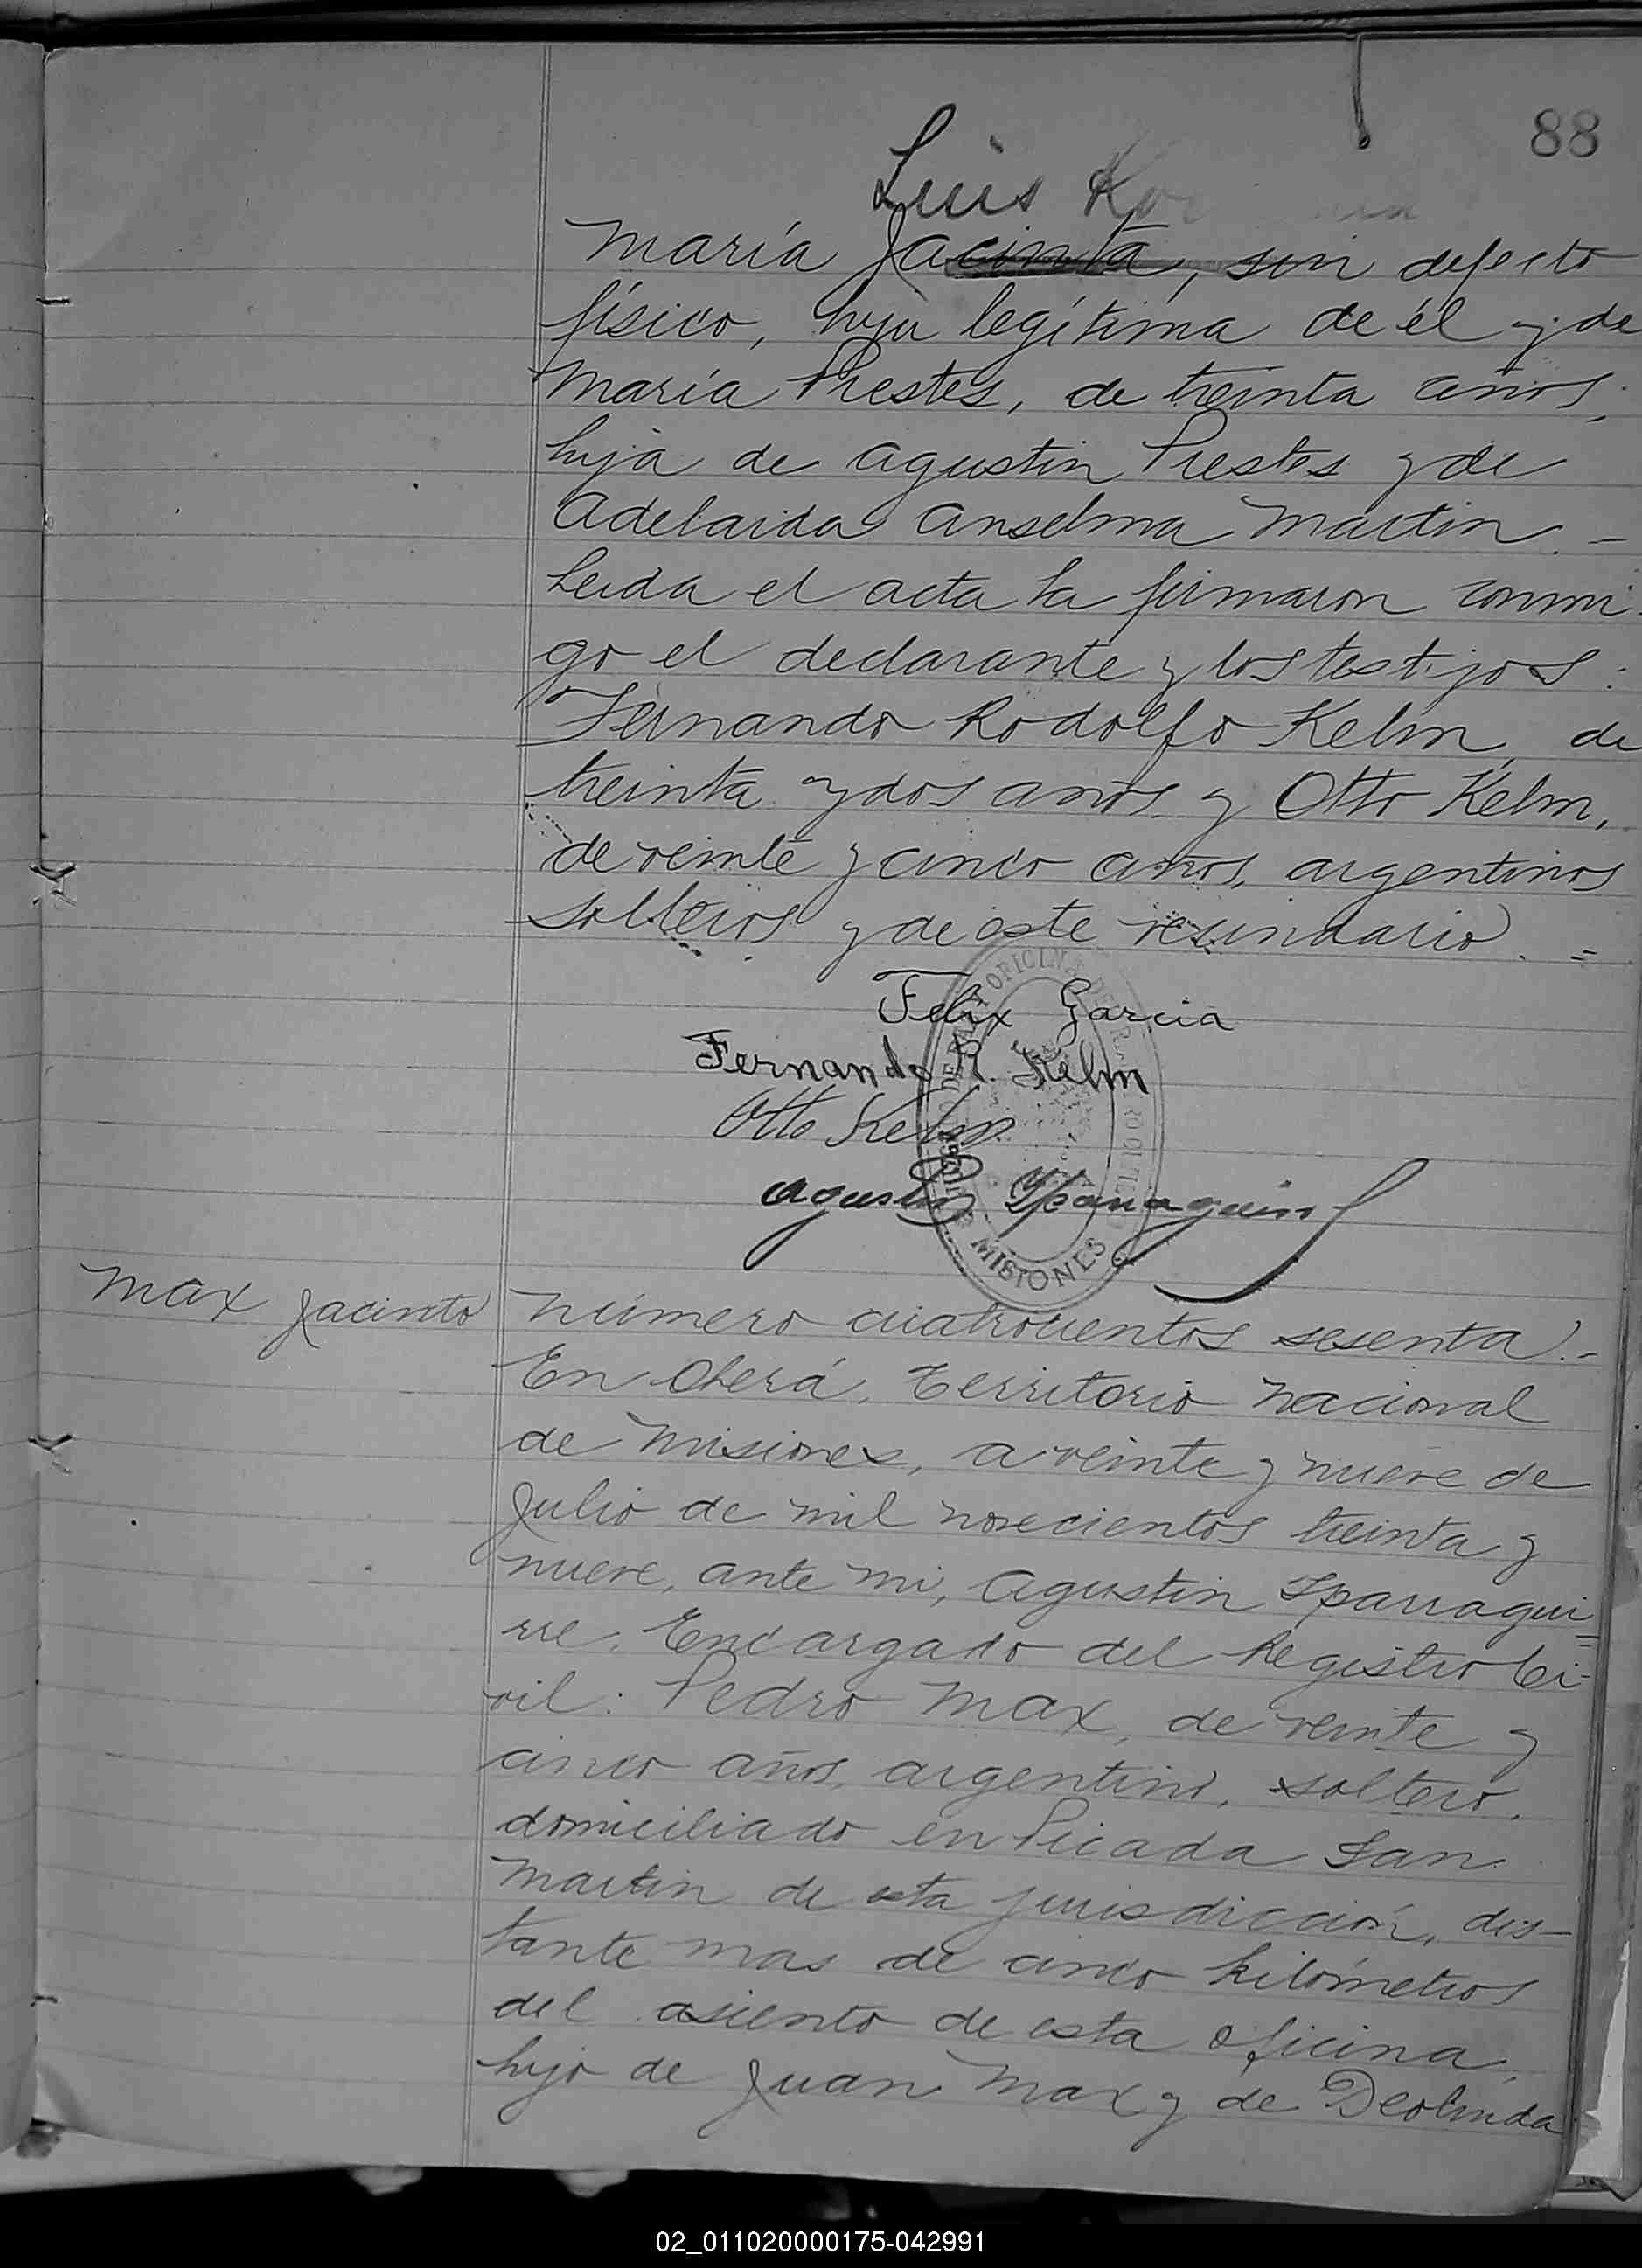 88
Luis
María Jacinta, sin defecto
físico, hija legítima de él y de
María Prestes, de treinta años,
hija de Agustin Prestes y de
Adelaida Anselma Martin. -
Leida el acta la firmaron conmi
go el declarante y los testigos:
Fernando Rodolfo Kelm, de
treinta y dos años y Otto Kelm,
de veinte y cinco años, argentinos
solteros y de este vecindario. =
Felix Garcia
Fernando R. Kelm
Otto Kelm
Agustin Yparraguirre
OFICINA DEL REGISTRO CIVIL
MISIONES
Max Jacinto
Número cuatrocientos sesenta. -
En Oberá, Territorio Nacional
de Misiones, a veinte y nueve de
Julio de mil novecientos treinta y
nueve, ante mi, Agustin Yparragui=
rre. Encargado del Registro Ci-
vil: Pedro Max, de veinte y
cinco años, argentino, soltero,
domiciliado en Picada San
Martin de esta jurisdicción, dis-
tante mas de cinco kilómetros
del asiento de esta oficina,
hijo de Juan Max y de Deolinda
02_011020000175-042991